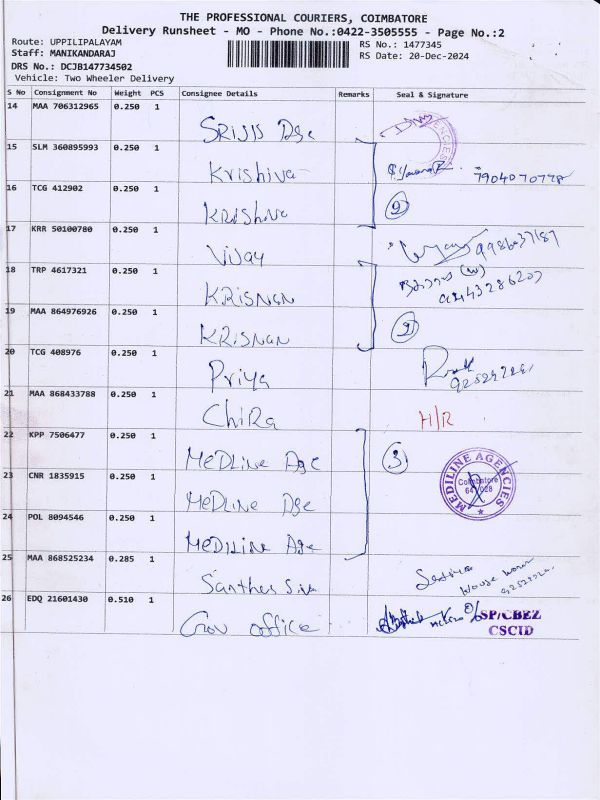 THE PROFESSIONAL COURIERS, COIMBATORE
Delivery Runsheet - MO - Phone No.:0422-3505555 - Page No.:2
Route: UPPILIPALAYAM
RS No.: 1477345
Staff: MANIKANDARAJ
RS Date: 20-Dec-2024
DRS No.: DCJB147734502
Vehicle: Two Wheeler Delivery
S No Consignment No Weight PCS Consignee Details Remarks Seal & Signature
14 MAA 706312965 0.250 1
15 SLM 360895993 0.250 1
Krishna 7904070778
16 TCG 412902 0.250 1
Krishna 2
17 KRR 50100780 0.250 1
Vijay
18 TRP 4617321 0.250 1
KRISNAN
19 MAA 864976926 0.250 1
KRISNAN 2
20 TCG 408976 0.250 1
Priya
21 MAA 868433788 0.250 1
ChiRa H/R
22 KPP 7506477 0.250 1
MeDLine Age 3
MEDILINE AGENCIES
Coimbatore
23 CNR 1835915 0.250 1
MeDLine Age
24 POL 8094546 0.250 1
MeDILine Age
25 MAA 868525234 0.285 1
26 EDQ 21601430 0.510 1
Gov office
SP/CBEZ
CSCID